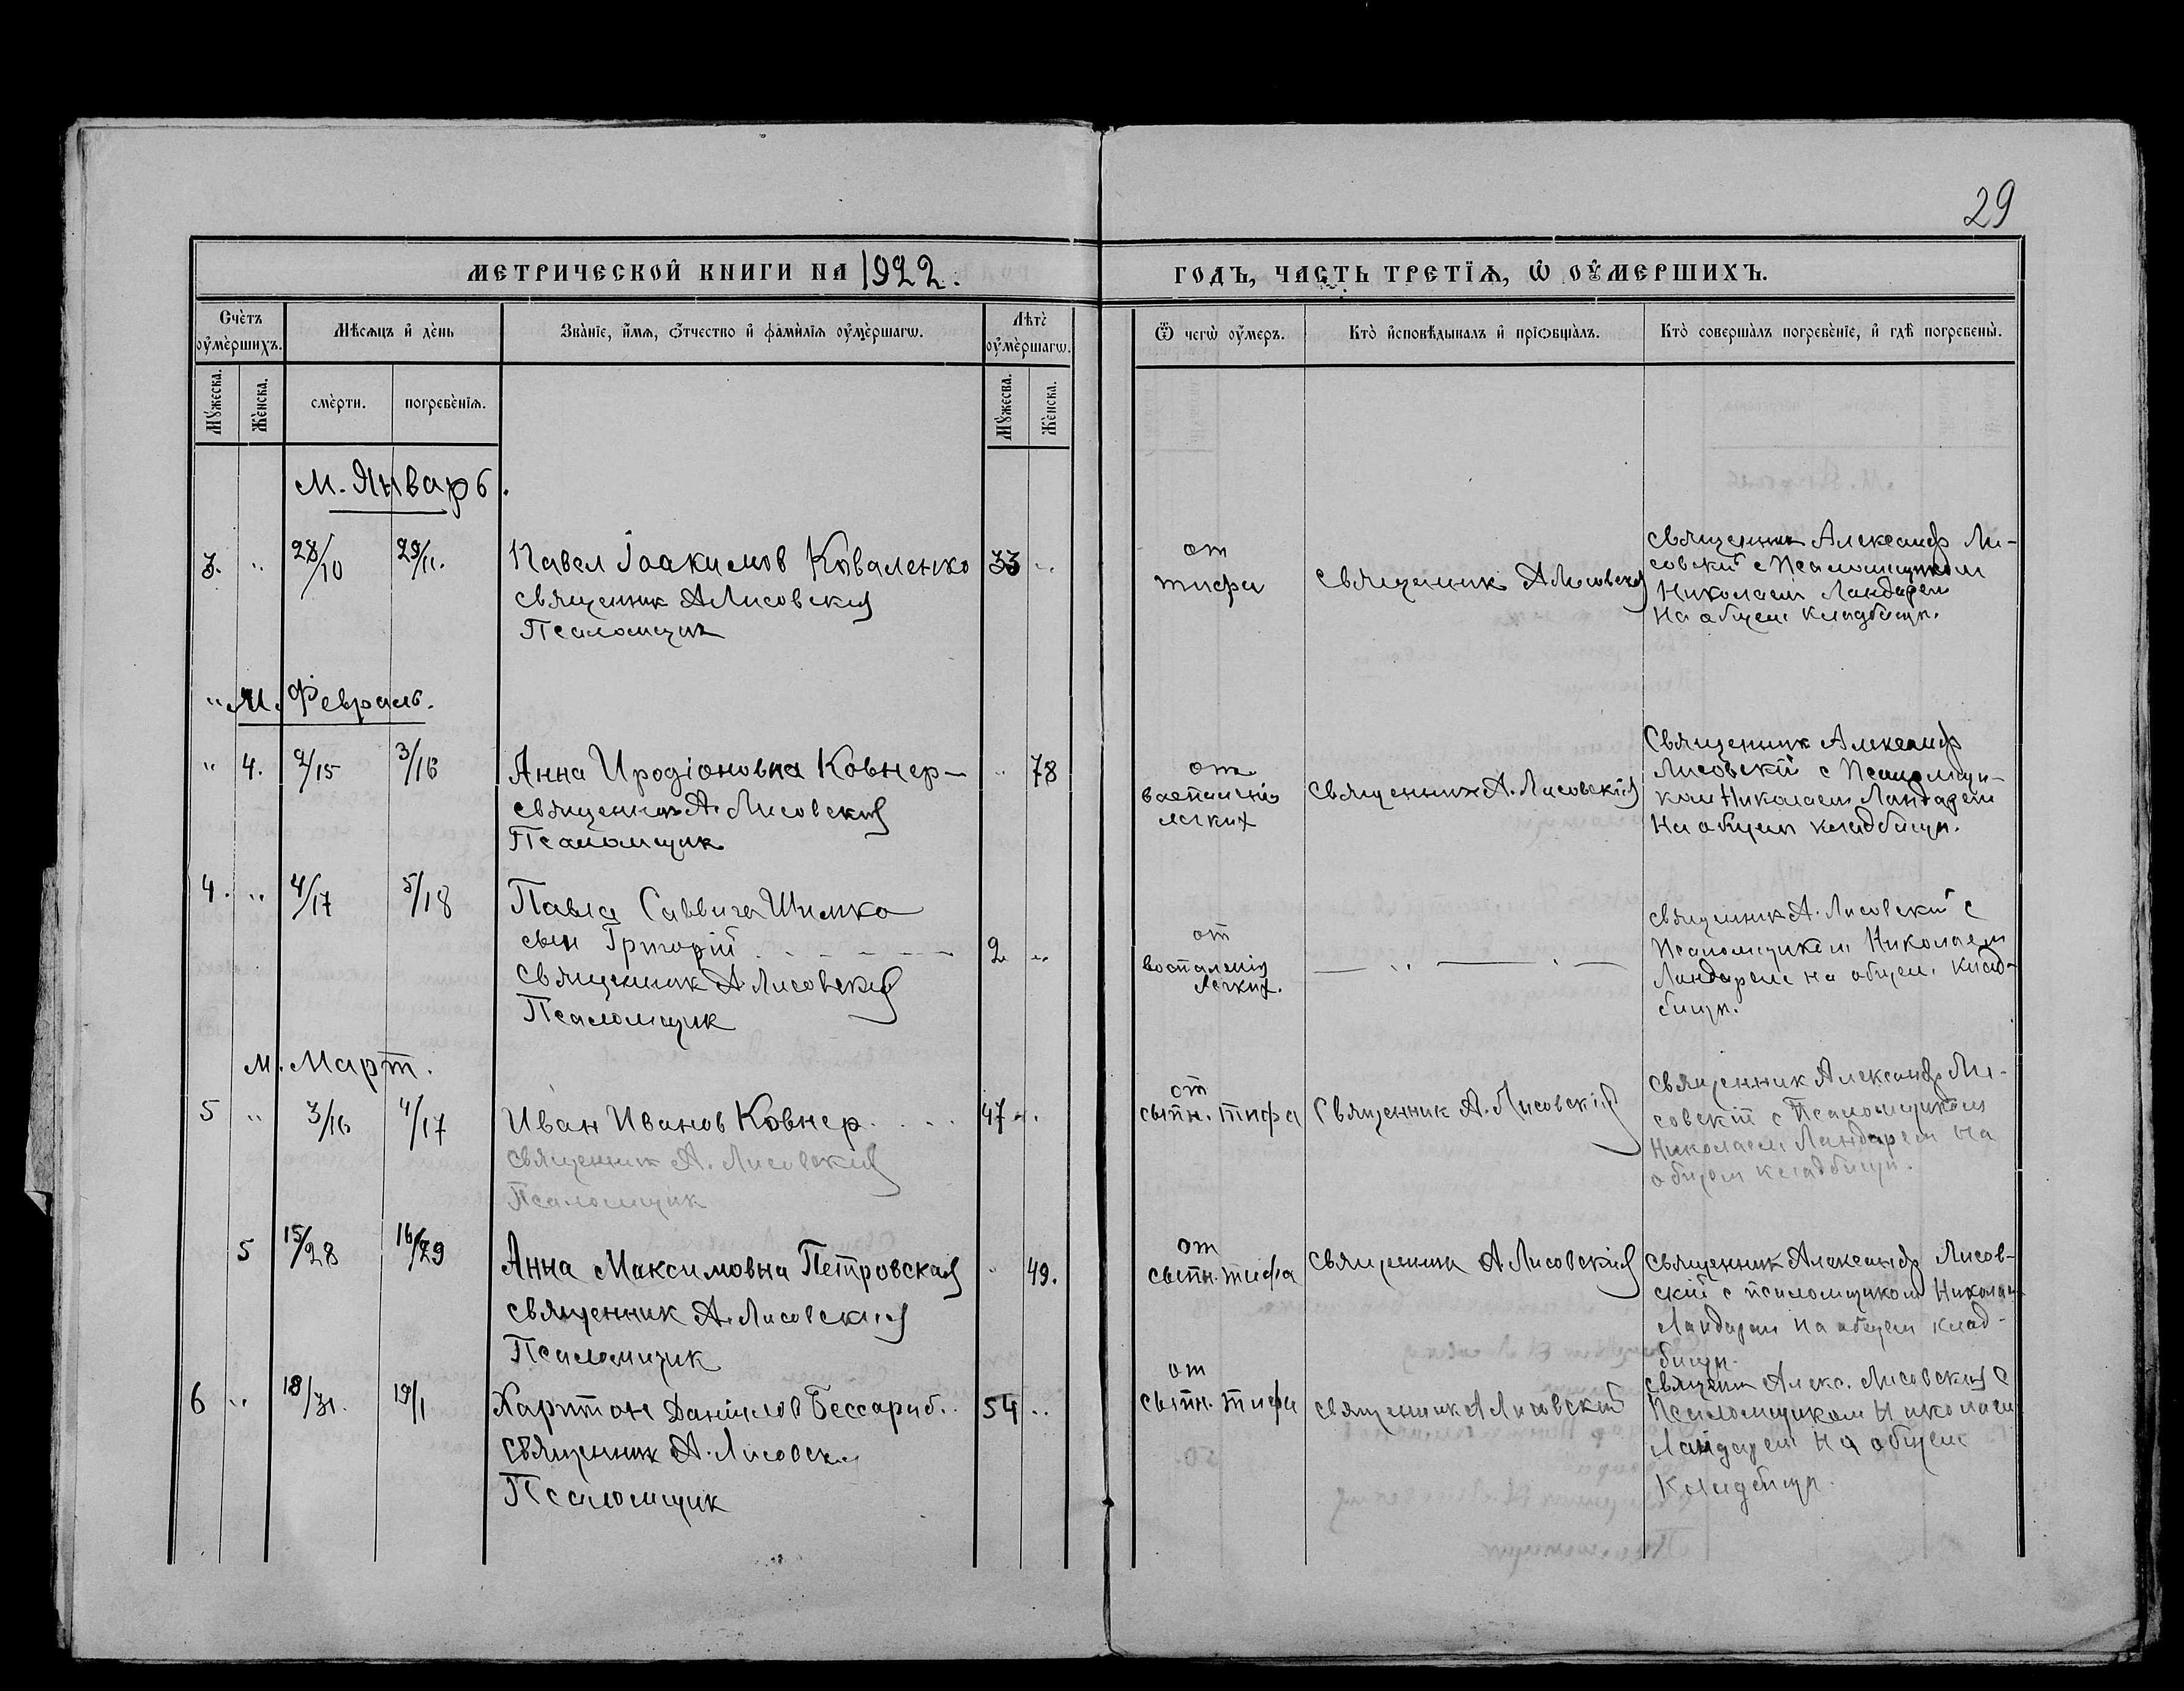 29
МЕТРИЧЕСКОЙ КНИГИ НА 1922.
ГОДЪ, ЧАСТЬ ТРЕТІѦ, Ѡ ОУМЕРШИХЪ.
Счетъ оумершихъ.
Мѣсѧцъ и день
Званіе, имѧ, отчество и фамиліѧ оумершагѡ.
Лѣтъ оумершагѡ.
Ѿ чегѡ оумеръ.
Кто исповѣдывалъ и пріобщалъ.
Кто совершалъ погребеніе, и гдѣ погребены.
Мужеска.
Женска.
смерти.
погребеніѧ.
Мужеска.
Женска.
М. Январь.
3. " 28/10 29/11. Павел Іоакимов Коваленко 33 "
Священник А Лисовскій
Псаломщик
от
тифа
Священник А Лисовскій
Священник Александр Ли-
совский с Псаломщиком
Николаем Ландарем
На общем кладбищѣ.
" М. Февраль.
" 4. 2/15 3/16 Анна Иродіоновна Ковнер - " 78
Священник А. Лисовскій
Псаломщик
от
воспаленія
легких
Священник А. Лисовскій
Священник Александр
Лисовскій с Псаломщи-
ком Николаем Ландарем
На общем кладбищѣ.
4. " 4/17 5/18 Павла Саввича Шимко
сын Григорій 2 "
Священник А. Лисовскій
Псаломщик
от
воспаленія
легких.
— " — " —
Священник А. Лисовский с
Псаломщиком Николаем
Ландарем на общем клад-
бищѣ.
М. Март.
5 " 3/16 4/17 Иван Иванов Ковнер. . . . 47 "
Священник А. Лисовскій
Псаломщик
от
сыпн. тифа
Священник А. Лисовскій
Священник Александр Ли-
совскій с Псаломщиком
Николаем Ландарем на
общем кладбищѣ.
5 15/28 16/29 Анна Максимовна Петровская " 49.
Священник А. Лисовский
Псаломщик
от
сыпн. тифа
Священник А Лисовскій
Священник Александр Лисов-
скій с псаломщиком Николаем
Ландарем на общем клад-
бищѣ.
6 " 18/31. 19/1 Харитон Даніилов Бессараб.. 54 "
Священник А. Лисовскій
Псаломщик
от
сыпн. тифа
Священник А Лисовский
Священник Алекс. Лисовский с
Псаломщиком Николаем
Ландарем на общем
Кладбищѣ.